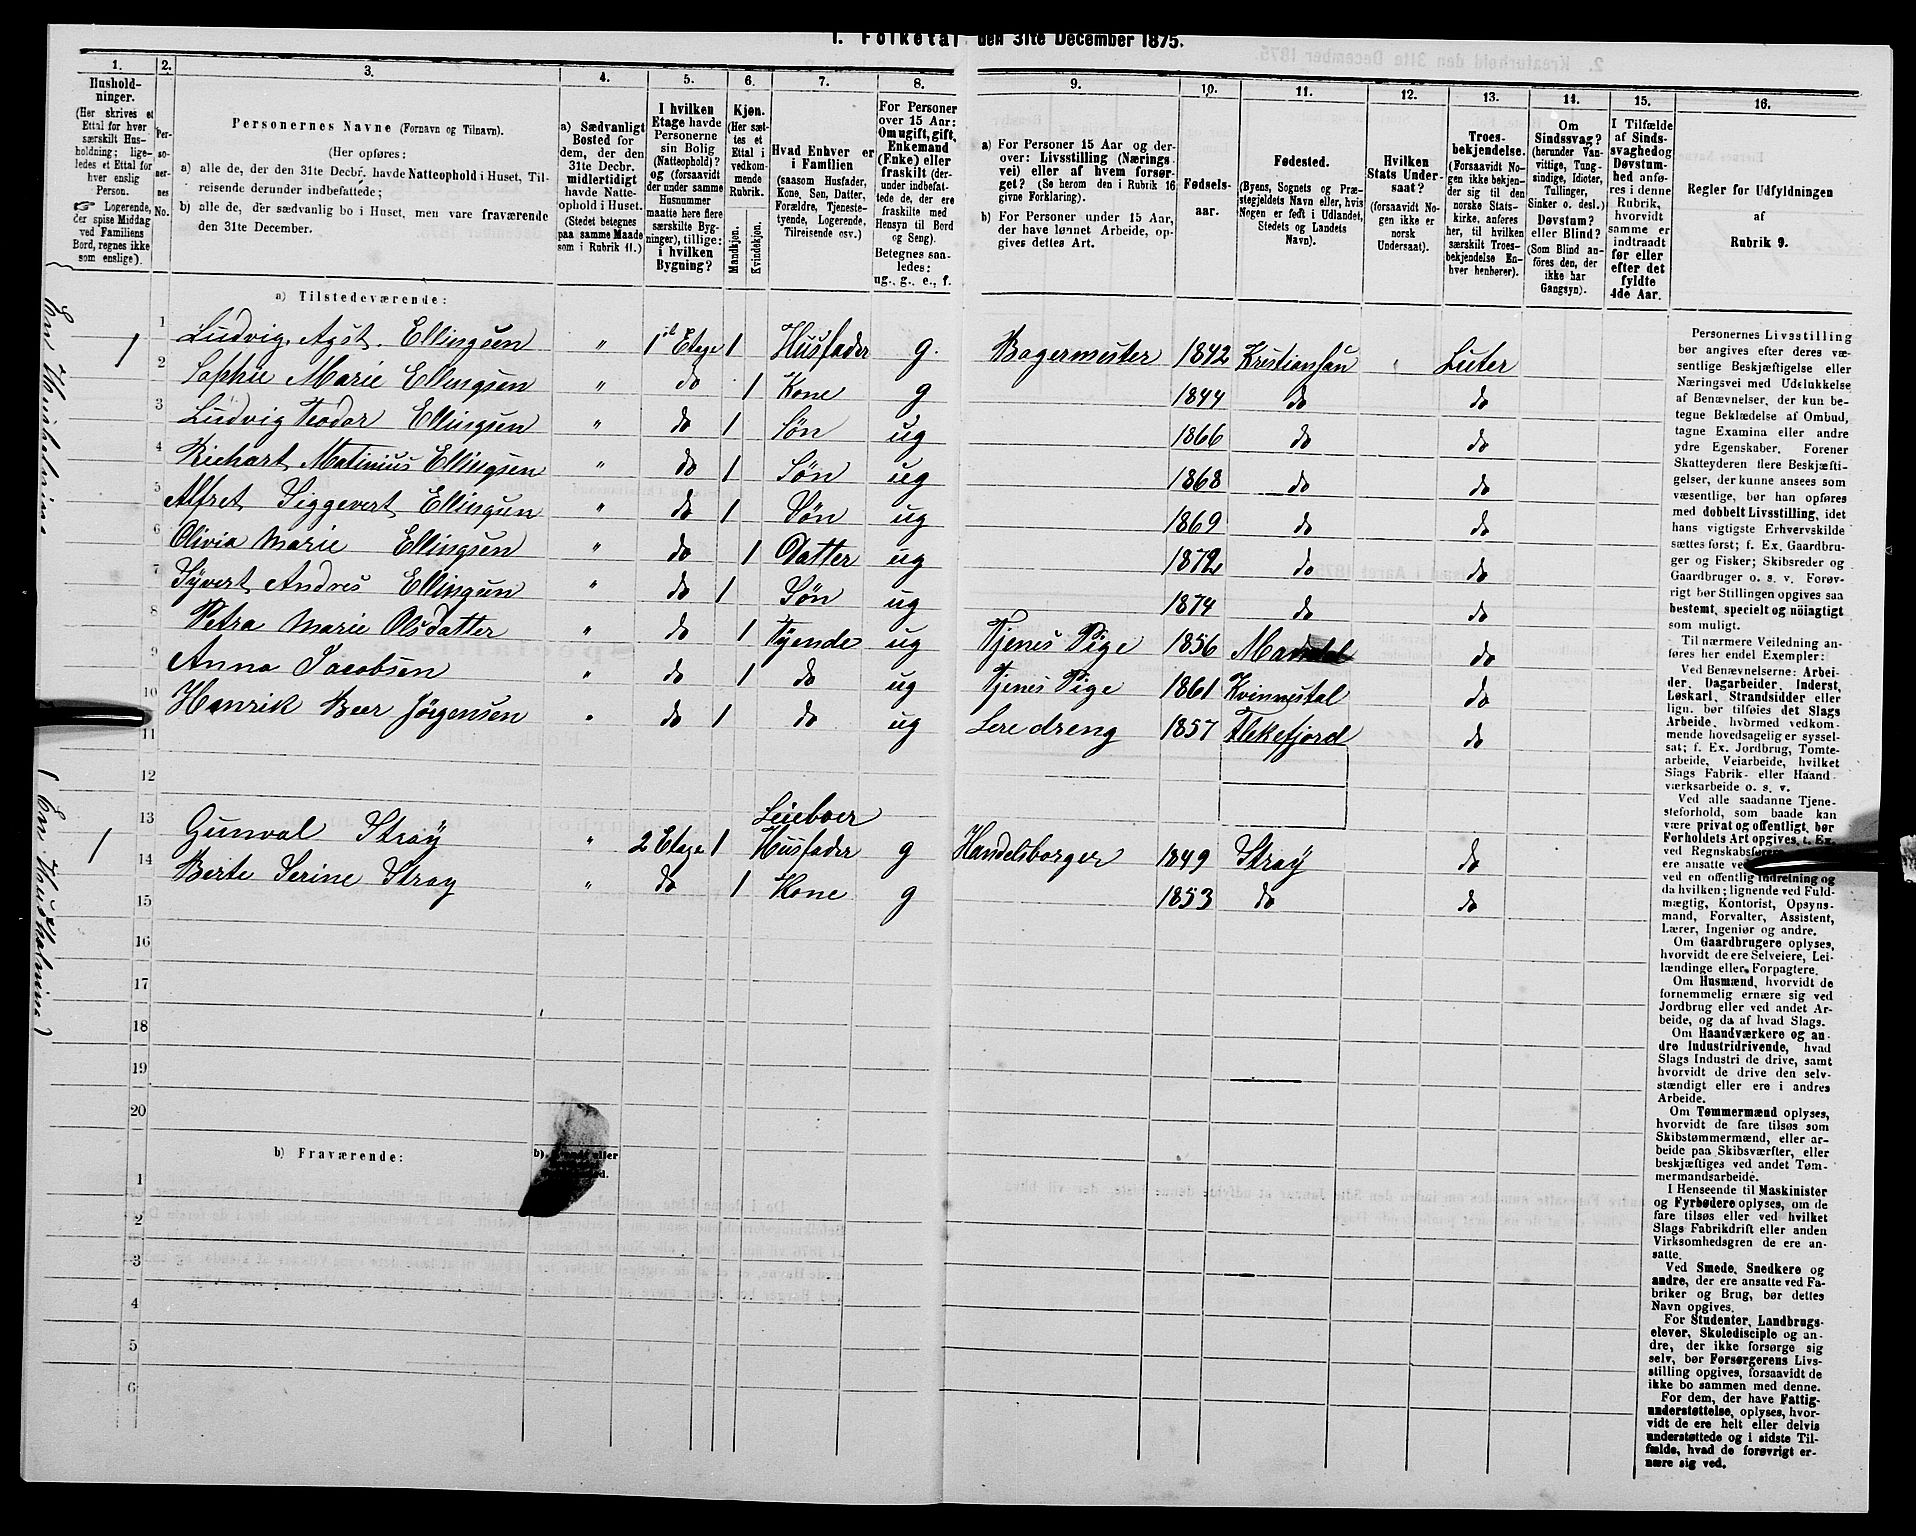 1. Folketal den 31te December 1875.
1. 2. 3. 4. 5. 6. 7. 8. 9. 10. 11. 12. 13. 14. 15. 16.
Hushold-
ninger.
(Her skrives et
Ettal for hver
særskilt Hus-
holdning; lige-
ledes et Ettal for
hver enslig
Person.
☞ Logerende,
der spise Middag
ved Familiens
Bord, regnes ikke
som enslige).
Per-
so-
ner-
nes
No.
Personernes Navne (Fornavn og Tilnavn).
(Her opføres:
a) alle de, der den 31te Decbr. havde Natteophold i Huset, Til-
reisende derunder indbefattede;
b) alle de, der sædvanlig bo i Huset, men vare fraværende
den 31te December.
a) Sædvanligt
Bosted for
dem, der den
31te Decbr.
midlertidigt
havde Natte-
ophold i Huset.
(Stedet betegnes
paa samme Maade
som i Rubrik 11.)
I hvilken
Etage havde
Personerne
sin Bolig
(Natteophold)?
og (forsaavidt
der under samme
Husnummer
maatte høre flere
særskilte Byg-
ninger), tillige:
i hvilken
Bygning?
Kjøn.
(Her sæt-
tes et
Ettal i
vedkom-
mende
Rubrik.
Mandkjøn.
Kvindekjøn.
Hvad Enhver er
i Familien
(saasom Husfader,
Kone, Søn, Datter,
Forældre, Tjeneste-
tyende, Logerende,
Tilreisende osv.)
For Personer
over 15 Aar:
Om ugift, gift,
Enkemand
(Enke) eller
fraskilt (der-
under indbefat-
tede de, der ere
fraskilte med
Hensyn til Bord
og Seng).
Betegnes saa-
ledes:
ug., g., e., f.
a) For Personer 15 Aar og der-
over: Livsstilling (Nærings-
vei) eller af hvem forsør-
get? (Se herom den i Rubrik 16
givne Forklaring).
b) For Personer under 15 Aar,
der have lønnet Arbeide, op-
gives dettes Art.
Fødsels-
aar.
Fødested.
(Byens, Sognets og Præ-
stegjeldets Navn eller, hvis
Nogen er født i Udlandet,
Stedets og Landets
Navn).
Hvilken
Stats Under-
saat?
(forsaavidt No-
gen ikke er
norsk
Undersaat).
Troes-
bekjendelse.
(Forsaavidt No-
gen ikke bekjen-
der sig til den
norske Stats-
kirke, anføres
her, til hvilken
særskilt Troes-
bekjendelse En-
hver henhører).
Om
Sindssvag?
(herunder Van-
vittige, Tung-
sindige, Idioter,
Tullinger,
Sinker o. desl.)
Døvstum?
eller Blind?
(Som Blind an-
føres den, der
ikke har
Gangsyn).
I Tilfælde
af Sinds-
svaghed og
Døvstum-
hed anfø-
res i denne
Rubrik,
hvorvidt
samme er
indtraadt
før eller
efter det
fyldte
4de Aar.
Regler for Udfyldningen
af
Rubrik 9.
a) Tilstedeværende:
En Husholdning
1 1 Ludvig Agst. Ellingsen " 1st Etage 1 Husfader g. Bagermester 1842 Kristiansan " Luter
2 Sophie Marie Ellingsen " do 1 Kone g 1844 do do
3 Ludvig Teodor Ellingsen " do 1 Søn ug 1866 do do
4 Richart Matinius Ellingsen " do 1 Søn ug 1868 do do
5 Alfret Siggevert Ellingsen " do 1 Søn ug 1869 do do
6 Olivia Marie Ellingsen " do 1 Datter ug 1872 do do
7 Syvert Andres Ellingsen " do 1 Søn ug 1874 do do
8 Petra Marie Olsdatter " do 1 Tyende ug Tjenes Pige 1856 Mandal do
9 Anna Jacobsen " do 1 do ug Tjenes Pige 1861 Kvinnesdal do
10 Henrik Beer Jörgensen " do 1 do ug Lere dreng 1857 Flekefjord do
11
12
Leieboer
(En Husholdning)
1 13 Gunval Strøy " 2 Etage 1 Husfader g Handelsborger 1849 Strøy do
14 Berte Serine Strøy " do 1 Kone g 1853 do do
15
16
17
18
19
20
b) Fraværende:
1
2
3
4
5
6
Personernes Livsstilling
bør angives efter deres væ-
sentlige Beskjæftigelse eller
Næringsvei med Udelukkelse
af Benævnelser, der kun be-
tegne Beklædelse af Ombud,
tagne Examina eller andre
ydre Egenskaber. Forener
Skatteyderen flere Beskjæfti-
gelser, der kunne ansees som
væsentlige, bør han opføres
med dobbelt Livsstilling, idet
hans vigtigste Erhvervskilde
sættes først; f. Ex. Gaardbru-
ger og Fisker; Skibsreder og
Gaardbruger o. s. v. Forøv-
rigt bør Stillingen opgives saa
bestemt, specielt og nöiagtigt
som muligt.
Til nærmere Veiledning an-
føres her endel Exempler:
Ved Benævnelserne: Arbei-
der, Dagarbeider, Inderst,
Løskarl, Strandsidder eller
lign. bør tilføies det Slags
Arbeide, hvormed vedkom-
mende hovedsagelig er syssel-
sat; f. Ex. Jordbrug, Tomte-
arbeide, Veiarbeide, hvilket
Slags Fabrik- eller Haand-
værksarbeide o. s. v.
Ved alle saadanne Tjene-
steforhold, som baade kan
være privat og offentligt, bør
Forholdets Art opgives, t. Ex.
ved en offentlig Indretning og
da hvilken; lignende ved Fuld-
mægtig, Kontorist, Opsyns-
mand, Forvalter, Assistent,
Lærer, Ingeniør og andre.
Om Gaardbrugere oplyses,
hvorvidt de ere Selveiere, Lei-
lændinge eller Forpagtere.
Om Husmænd, hvorvidt de
fornemmelig ernære sig ved
Jordbrug eller ved andet Ar-
beide, og da af hvad Slags.
Om Haandværkere og an-
dre Industridrivende, hvad
Slags Industri de drive, samt
hvorvidt de drive den selv-
stændigt eller ere i andres
Arbeide.
Om Tømmermænd oplyses,
hvorvidt de fare tilsøs som
Skibstømmermænd, eller ar-
beide paa Skibsværfter, eller
beskjæftiges ved andet Tøm-
mermandsarbeide.
I Henseende til Maskinister
og Fyrbødere oplyses, om de
fare tilsøs eller ved hvilket
Slags Fabrikdrift eller anden
Virksomhedsgren de ere an-
satte.
Ved Smede, Snedkere og
andre, der ere ansatte ved Fa-
briker og Brug, bør dettes
Navn opgives.
For Studenter, Landbrugs-
elever, Skoledisciple og an-
dre, der ikke forsørge sig
selv, bør Forsørgerens Livs-
stilling opgives, forsaavidt de
ikke bo sammen med denne.
For dem, der have Fattig-
understøttelse, oplyses, hvor-
vidt de ere helt eller delvis
understøttede og i sidste Til-
fælde, hvad de forøvrigt er-
nære sig ved.